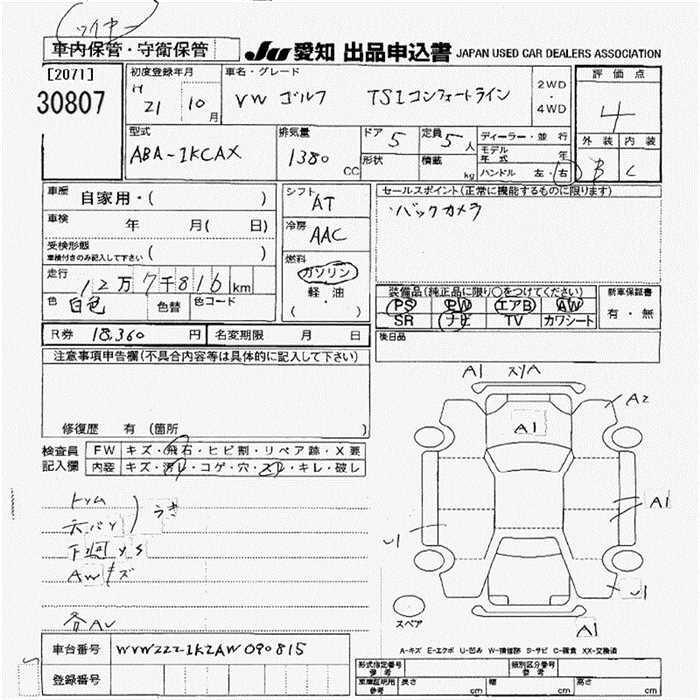 車内保管・守衛保管
JU 愛知 出品申込書 JAPAN USED CAR DEALERS ASSOCIATION
[2071]
30807
初度登録年月
H 21 10月
車名・グレード
VW ゴルフ TSIコンフォートライン
2WD
・
4WD
評価点
4
型式
ABA-1KCAX
排気量
1380 CC
ドア 5
定員 5人
形状
積載 kg
ディーラー・並行
モデル年式 年
ハンドル 左・右
外装 内装
B C
車歴 自家用・( )
車検 年 月( 日)
受検形態
車検付きのみ記入して下さい ( )
走行
12万7千816km
色 白色 色替 色コード
シフト
AT
冷房
AAC
燃料
ガソリン
軽油
( )
セールスポイント(正常に機能するものに限ります)
・バックカメラ
装備品(純正品に限り○をつけてください)
PS PW エアB AW
SR ナビ TV カワシート
新車保証書
有・無
R券 18,360 円 名変期限 月 日
後日品
注意事項申告欄(不具合内容等は具体的に記入して下さい)
修復歴 有(箇所 )
検査員
記入欄
FW キズ・飛石・ヒビ割・リペア跡・X要
内装 キズ・汚レ・コゲ・穴・スレ・キレ・破レ
A1
A2
A1
A1
U1
U1
A1
スペア
AWキズ
車台番号 WVWZZZ1KZAW090815
登録番号
A-キズ E-エクボ U-凹み W-補修跡 S-サビ C-腐食 XX-交換済
形式指定番号
参考
類別区分番号
参考
車庫証明用
参考 長さ cm 幅 cm 高さ cm